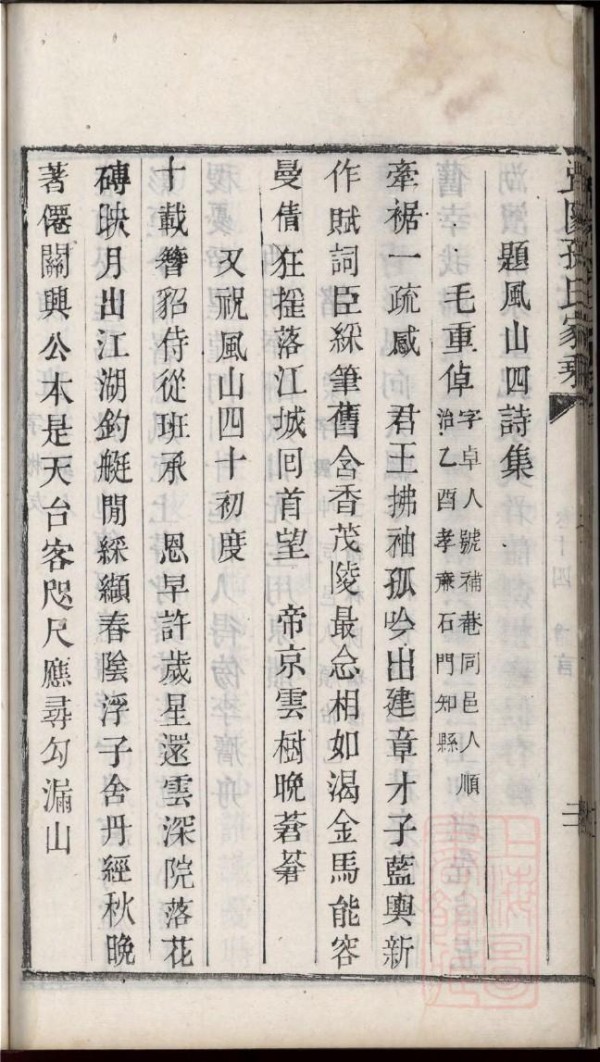 題風山四詩集
毛重倬字卓人號補菴同邑人順
治乙酉孝廉石門知縣
牽裾一疏感 君王拂袖孤吟出建章才子藍輿新
作賦詞臣綵筆舊含香茂陵最念相如渴金馬能容
曼倩狂摇落江城回首望 帝京雲樹晚蒼蒼
又祝風山四十初度
十載簪貂侍從班承 恩早許歲星還雲深院落花
磚映月出江湖釣艇閒綵纈春陰浮子舍丹經秋晚
著僊關興公本是天台客咫尺應尋勾漏山
孫氏家乘